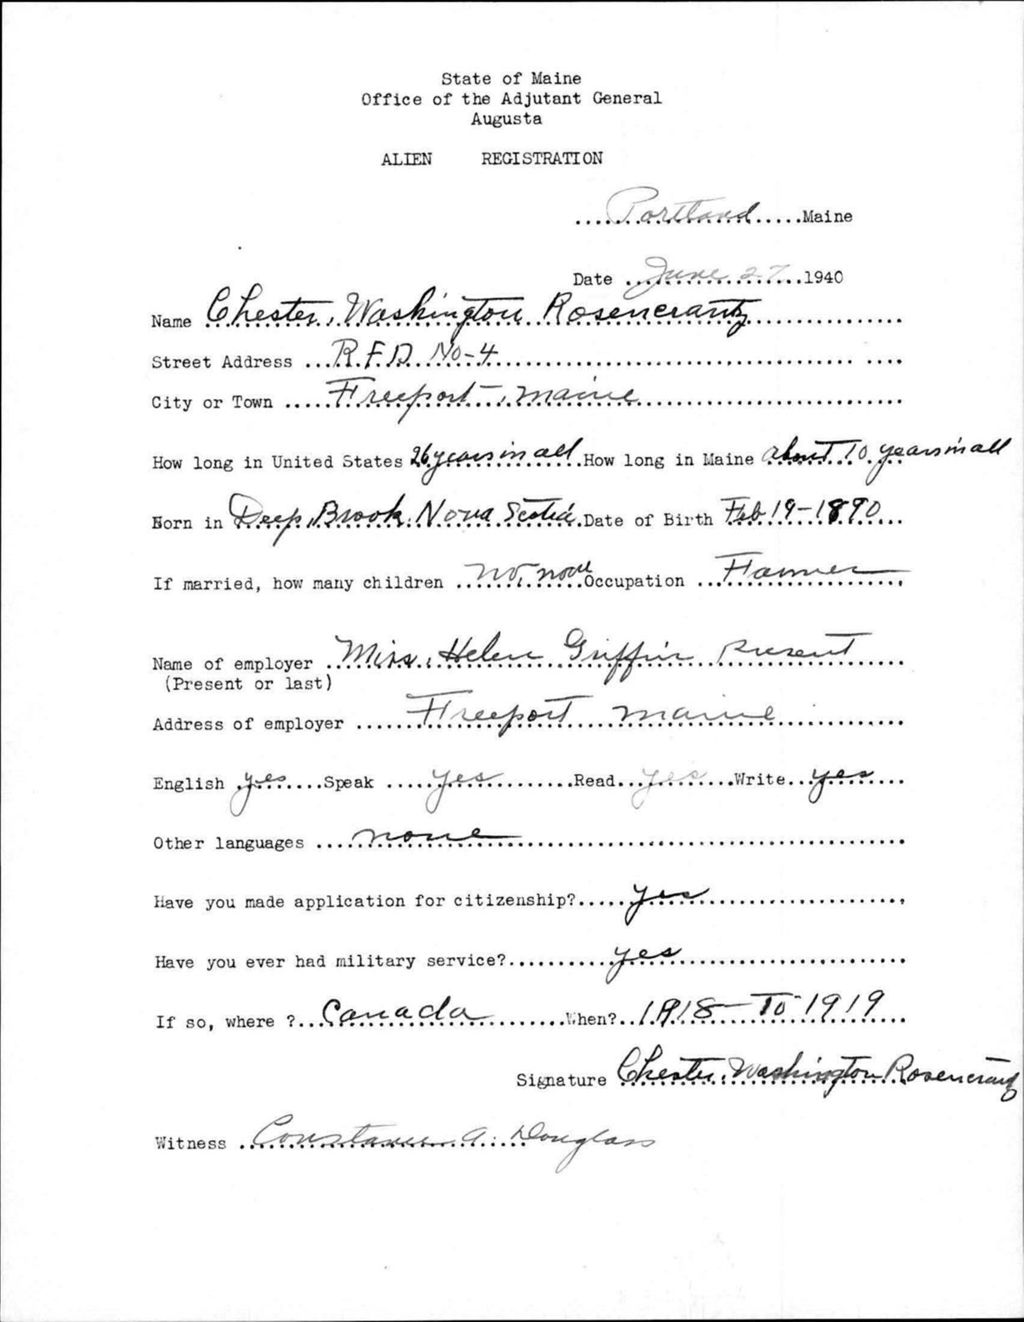 State of Maine
Office of the Adjutant General
Augusta
ALIEN REGISTRATION
....Portland.....Maine
Date ...June 27...1940
Name Chester, Washington Rosencrantz
Street Address ...R.F.D. No-4
City or Town .....Freeport, Maine
How long in United States 26 years in all. How long in Maine about 10 years in all
Born in Deep, Brook. Nova Scotia. Date of Birth Feb 19-1890
If married, how many children ...no, none Occupation ...Farmer
Name of employer ..Miss, Helen Griffin Present
(Present or last)
Address of employer ......Freeport Maine
English yes.....Speak .....yes.......Read...yes...Write...yes
Other languages ....none
Have you made application for citizenship?.....yes
Have you ever had military service?..........yes
If so, where ?...Canada.........When?..1918-To-1919
Signature Chester, Washington Rosencrantz
Witness ..Constance A. Douglass